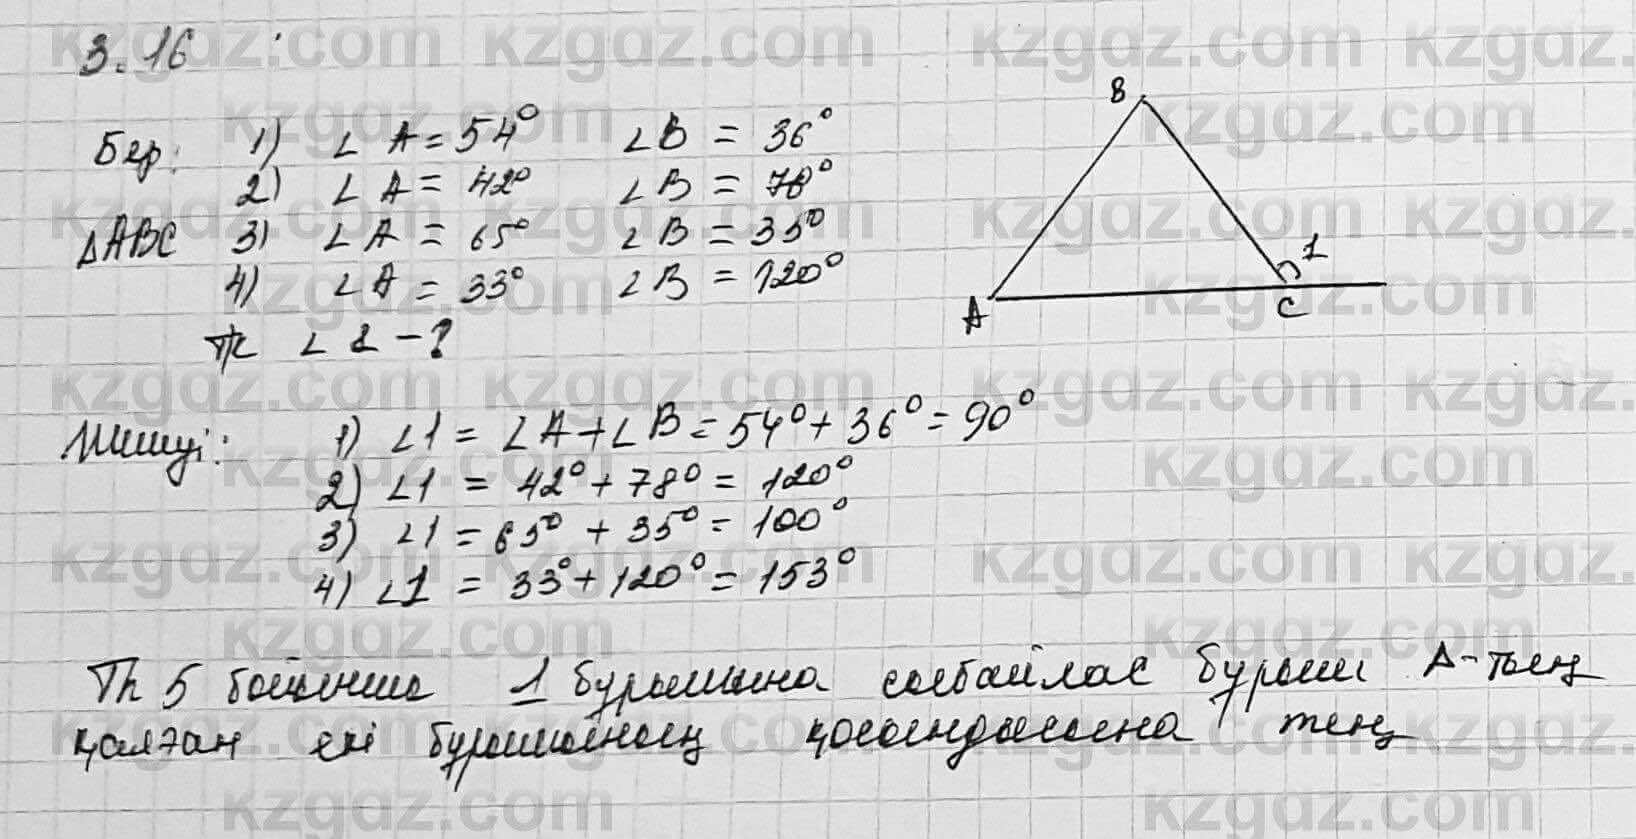 3.16
Бер: 1) ∠A = 54° ∠B = 36°
2) ∠A = 42° ∠B = 78°
ΔABC 3) ∠A = 65° ∠B = 35°
4) ∠A = 33° ∠B = 120°
Т/к ∠1 - ?
B
1
A
C
Шешуі: 1) ∠1 = ∠A + ∠B = 54° + 36° = 90°
2) ∠1 = 42° + 78° = 120°
3) ∠1 = 65° + 35° = 100°
4) ∠1 = 33° + 120° = 153°
Th 5 бойынша 1 бұрышына сыбайлас бұрыш Δ-тың
қалған екі бұрышының қосындысына тең
kzgdz.com